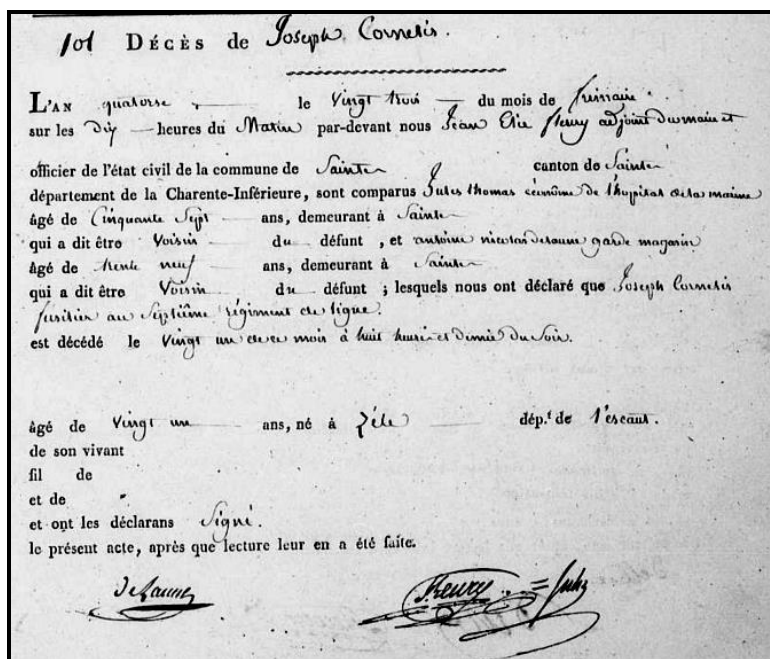 101 Décès de Joseph Cornelis.
L'an quatorze le Vingt trois du mois de frimaire.
sur les dix heures du Matin par-devant nous Jean Elie fleury adjoint du maire et
officier de l'état civil de la commune de Sainte canton de Sainte
département de la Charente-Inférieure, sont comparus Jules thomas économe de l'hopital de la marine
âgé de Cinquante Sept ans, demeurant à Sainte
qui a dit être Voisin du défunt, et antoine nicolas delaune garde magasin
âgé de trente neuf ans, demeurant à Sainte
qui a dit être Voisin du défunt; lesquels nous ont déclaré que Joseph Cornelis
fusilier au Septième régiment de ligne.
est décédé le Vingt un de ce mois à huit heures et demie du Soir.
âgé de Vingt un ans, né à Zéle dép.t de l'escaut.
de son vivant
fil de
et de
et ont les déclarans Signé.
le présent acte, après que lecture leur en a été faite.
Delaune fleury Jules